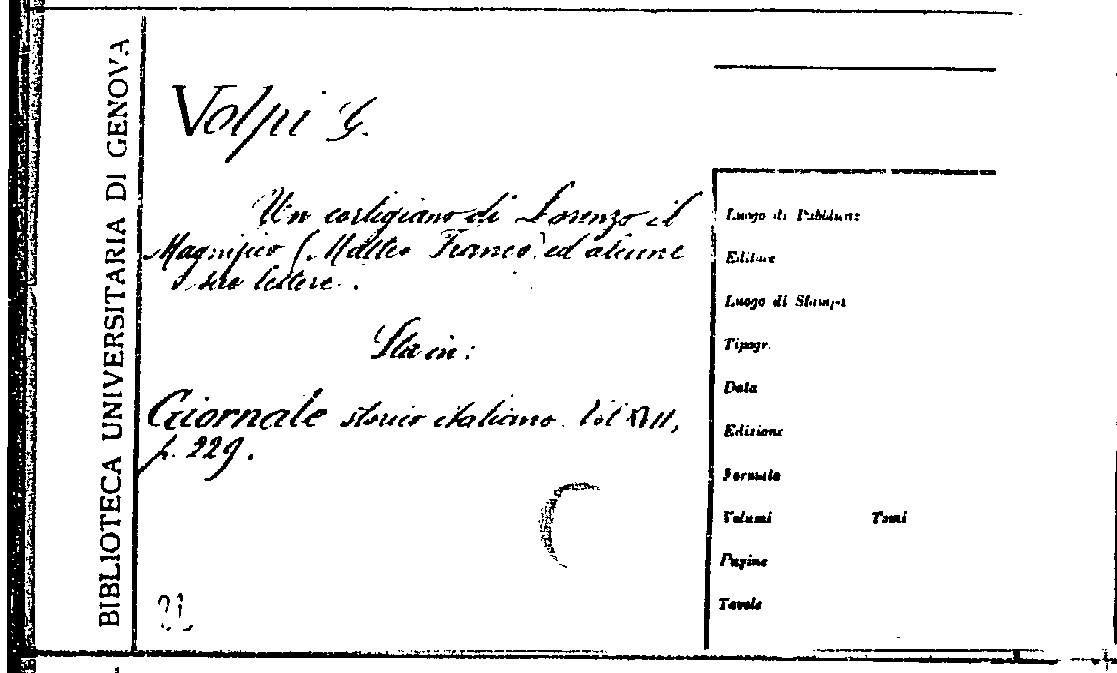 BIBLIOTECA UNIVERSITARIA DI GENOVA
Volpi G.
Un cortigiano di Lorenzo il
Magnifico (Matteo Franco) ed alcune
sue lettere.
Sta in:
Giornale storico italiano. Vol XVII,
p. 229.
Luogo di Pubblicaz
Editore
Luogo di Stampa
Tipogr.
Data
Edizione
Formato
Volumi Tomi
Pagine
Tavole